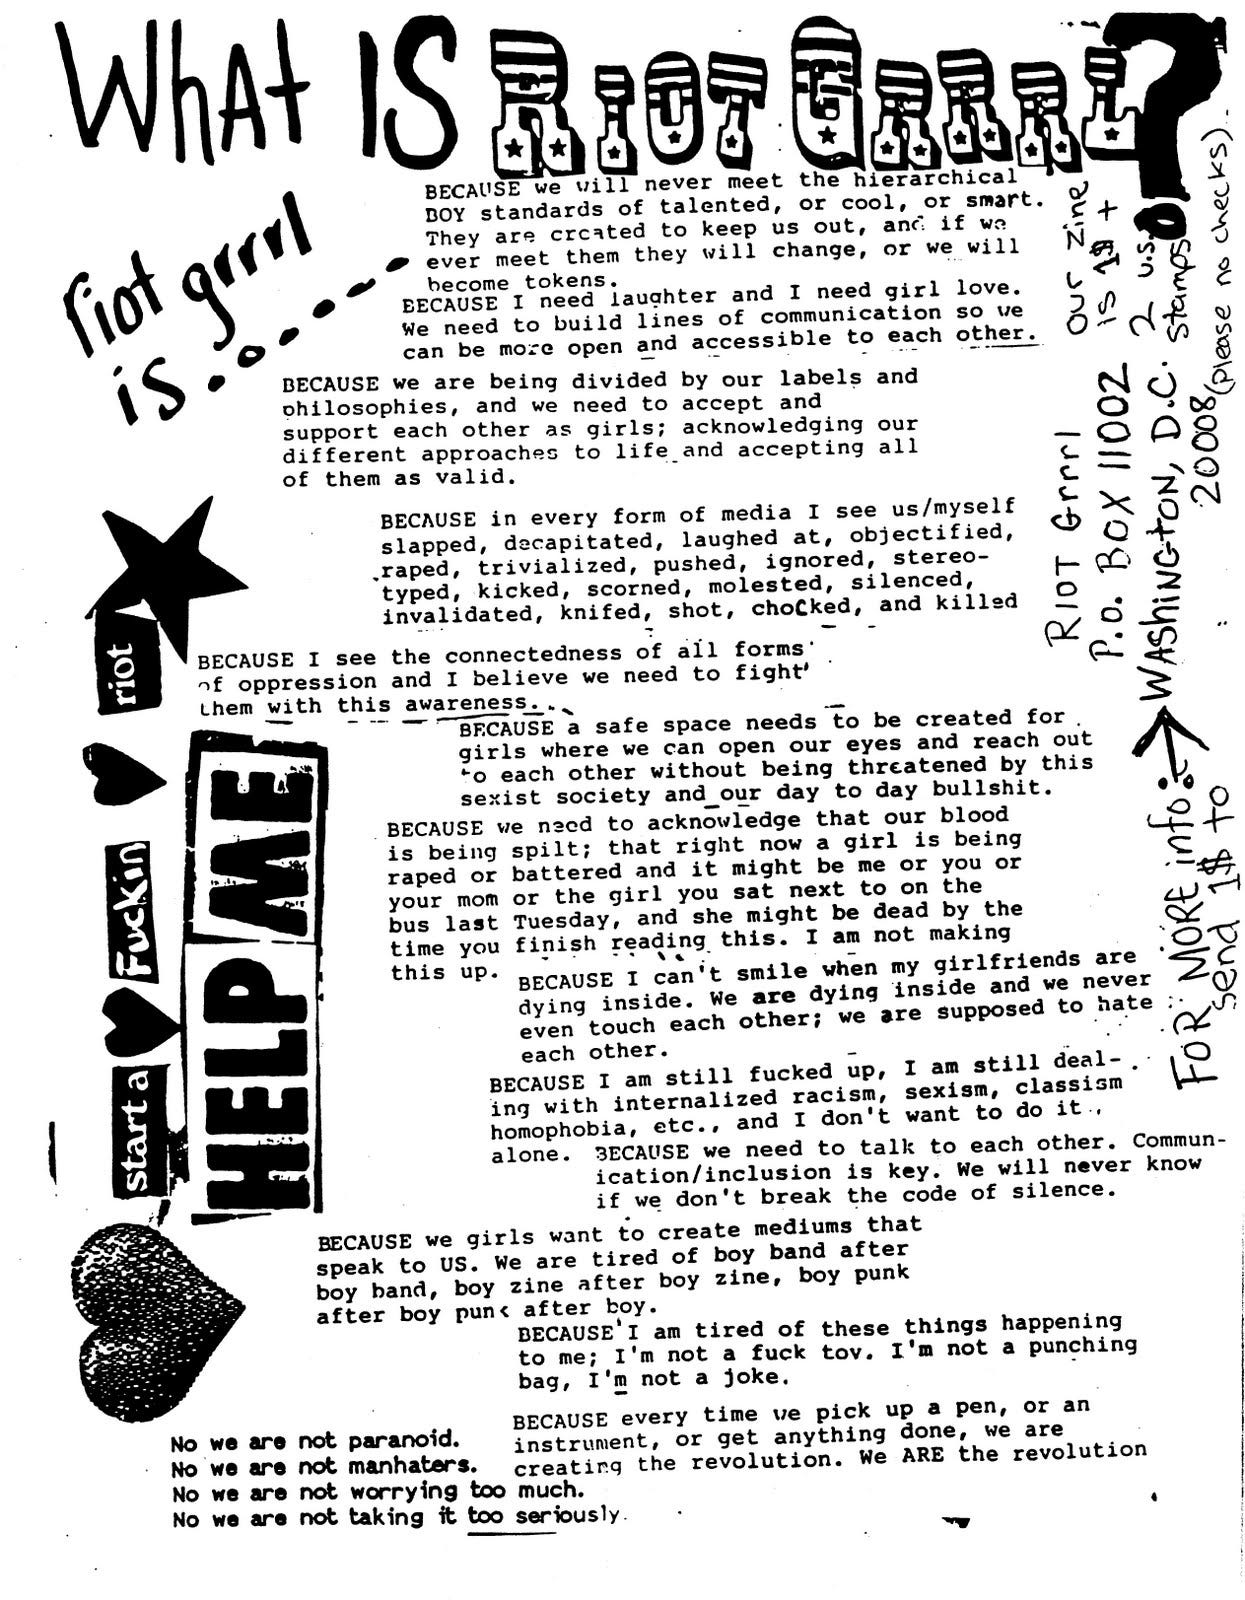 WhAt IS RIOT GRRRL?
riot grrrl
is.......
BECAUSE we will never meet the hierarchical
BOY standards of talented, or cool, or smart.
They are created to keep us out, and if we
ever meet them they will change, or we will
become tokens.
BECAUSE I need laughter and I need girl love.
We need to build lines of communication so we
can be more open and accessible to each other.
BECAUSE we are being divided by our labels and
philosophies, and we need to accept and
support each other as girls; acknowledging our
different approaches to life and accepting all
of them as valid.
BECAUSE in every form of media I see us/myself
slapped, decapitated, laughed at, objectified,
raped, trivialized, pushed, ignored, stereo-
typed, kicked, scorned, molested, silenced,
invalidated, knifed, shot, choCked, and killed
BECAUSE I see the connectedness of all forms
of oppression and I believe we need to fight
them with this awareness...
BECAUSE a safe space needs to be created for
girls where we can open our eyes and reach out
to each other without being threatened by this
sexist society and our day to day bullshit.
BECAUSE we need to acknowledge that our blood
is being spilt; that right now a girl is being
raped or battered and it might be me or you or
your mom or the girl you sat next to on the
bus last Tuesday, and she might be dead by the
time you finish reading this. I am not making
this up.
BECAUSE I can't smile when my girlfriends are
dying inside. We are dying inside and we never
even touch each other; we are supposed to hate
each other.
BECAUSE I am still fucked up, I am still deal-
ing with internalized racism, sexism, classism
homophobia, etc., and I don't want to do it
alone.
BECAUSE we need to talk to each other. Commun-
ication/inclusion is key. We will never know
if we don't break the code of silence.
BECAUSE we girls want to create mediums that
speak to US. We are tired of boy band after
boy band, boy zine after boy zine, boy punk
after boy punk after boy.
BECAUSE I am tired of these things happening
to me; I'm not a fuck toy. I'm not a punching
bag, I'm not a joke.
BECAUSE every time we pick up a pen, or an
instrument, or get anything done, we are
creating the revolution. We ARE the revolution
No we are not paranoid.
No we are not manhaters.
No we are not worrying too much.
No we are not taking it too seriously.
start a
Fuckin
riot
HELP ME
FOR MORE info:
send 1$ to
RIOT Grrrl
P.O. BOX 11002
WAShINGTON, D.C.
20008
our zine
is 1$ +
2 U.S.
stamps
(please no checks).